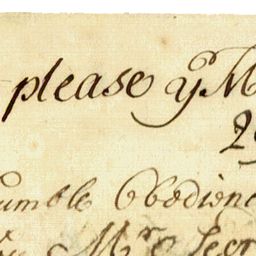 please yͤ M
umble Obedienc
Mͬ Secr